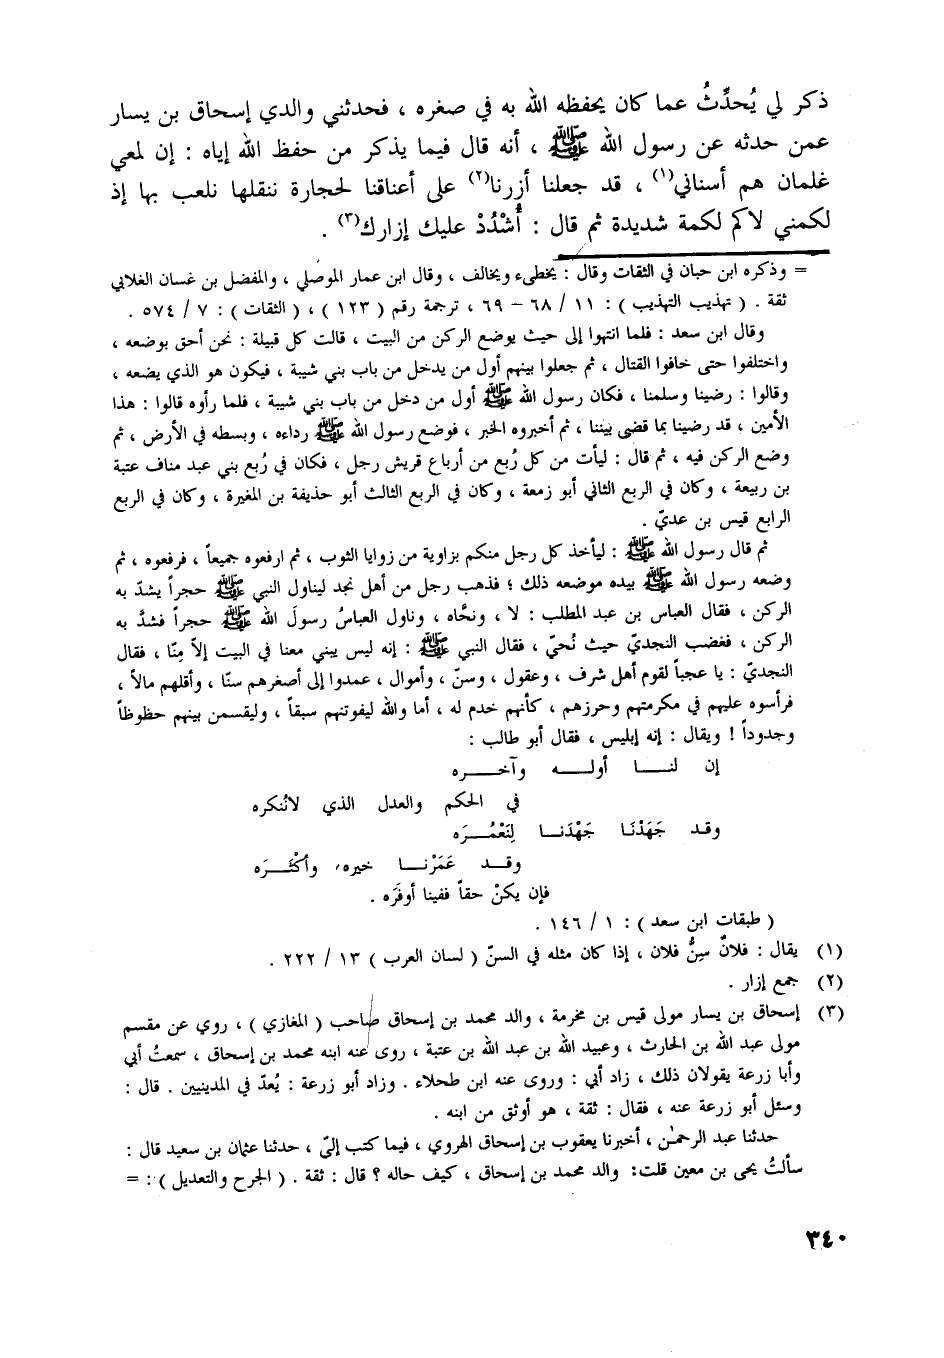 ذكر لي يُحدِّثُ عما كان يحفظه الله به في صغره ، فحدثني والدي إسحاق بن يسار
عمن حدثه عن رسول الله ﷺ ، أنه قال فيما يذكر من حفظ الله إياه : إن لمعي
غلمان هم أسناني(١) ، قد جعلنا أزرنا(٢) على أعناقنا لحجارة ننقلها نلعب بها إذ
لكمني لاكم لكمة شديدة ثم قال : أُشْدُدْ عليك إزارك(٣) .
= وذكره ابن حبان في الثقات وقال : يخطىء ويخالف ، وقال ابن عمار الموصلي ، والمفضل بن غسان الغلابي
ثقة . ( تهذيب التهذيب ) : ١١ / ٦٨ – ٦٩ ، ترجمة رقم ( ١٢٣ ) ، ( الثقات ) : ٧ / ٥٧٤ .
وقال ابن سعد : فلما انتهوا إلى حيث يوضع الركن من البيت ، قالت كل قبيلة : نحن أحق بوضعه ،
واختلفوا حتى خافوا القتال ، ثم جعلوا بينهم أول من يدخل من باب بني شيبة ، فيكون هو الذي يضعه ،
وقالوا : رضينا وسلمنا ، فكان رسول الله ﷺ أول من دخل من باب بني شيبة ، فلما رأوه قالوا : هذا
الأمين ، قد رضينا بما قضى بيننا ، ثم أخبروه الخبر ، فوضع رسول الله ﷺ رداءه ، وبسطه في الأرض ، ثم
وضع الركن فيه ، ثم قال : ليأت من كل رُبع من أرباع قريش رجل ، فكان في رُبع بني عبد مناف عتبة
بن ربيعة ، وكان في الربع الثاني أبو زمعة ، وكان في الربع الثالث أبو حذيفة بن المغيرة ، وكان في الربع
الرابع قيس بن عديّ .
ثم قال رسول الله ﷺ : ليأخذ كل رجل منكم بزاوية من زوايا الثوب ، ثم ارفعوه جميعاً ، فرفعوه ، ثم
وضعه رسول الله ﷺ بيده موضعه ذلك ؛ فذهب رجل من أهل نجد ليناول النبي ﷺ حجراً يشدّ به
الركن ، فقال العباس بن عبد المطلب : لا ، ونحَّاه ، وناول العباسُ رسولَ الله ﷺ حجراً فشدَّ به
الركن ، فغضب النجديّ حيث نُحيّ ، فقال النبي ﷺ : إنه ليس يبني معنا في البيت إلاّ مِنّا ، فقال
النجديّ : يا عجباً لقوم أهل شرف ، وعقول ، وسنّ ، وأموال ، عمدوا إلى أصغرهم سنّا ، وأقلهم مالاً ،
فرأسوه عليهم في مكرمتهم وحرزهم ، كأنهم خدم له ، أما والله ليفوتنهم سبقاً ، وليقسمن بينهم حظوظاً
وجدوداً ! ويقال : إنه إبليس ، فقال أبو طالب :
إن لنــا أولــه وآخــره
في الحكم والعدل الذي لاتُنكره
وقد جَهَدْنَا جَهْدَنــا لِنَعْمُــرَه
وقــد عَمَرْنــا خيره، وأكْثَــرَه
فإن يكنْ حقاً ففينا أوفَره .
( طبقات ابن سعد ) : ١ / ١٤٦ .
(١) يقال : فلانٌ سِنُّ فلان ، إذا كان مثله في السنّ ( لسان العرب ) ١٣ / ٢٢٢ .
(٢) جمع إزار .
(٣) إسحاق بن يسار مولى قيس بن مخرمة ، والد محمد بن إسحاق صاحب ( المغازي ) ، روي عن مقسم
مولى عبد الله بن الحارث ، وعبيد الله بن عبد الله بن عتبة ، روى عنه ابنه محمد بن إسحاق ، سمعتُ أبي
وأبا زرعة يقولان ذلك ، زاد أبي : وروى عنه ابن طحلاء . وزاد أبو زرعة : يُعدّ في المدينيين . قال :
وسئل أبو زرعة عنه ، فقال : ثقة ، هو أوثق من ابنه .
حدثنا عبد الرحمٰن ، أخبرنا يعقوب بن إسحاق الهروي ، فيما كتب إليّ ، حدثنا عثمان بن سعيد قال :
سألتُ يحى بن معين قلت: والد محمد بن إسحاق ، كيف حاله ؟ قال : ثقة . ( الجرح والتعديل ) : =
٣٤٠